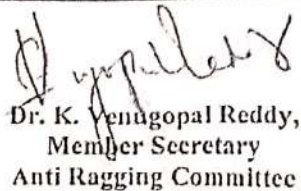 Dr. K. Venugopal Reddy,
Member Secretary
Anti Ragging Committee